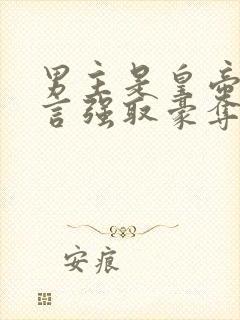 男主是皇帝
言强取豪夺
安痕